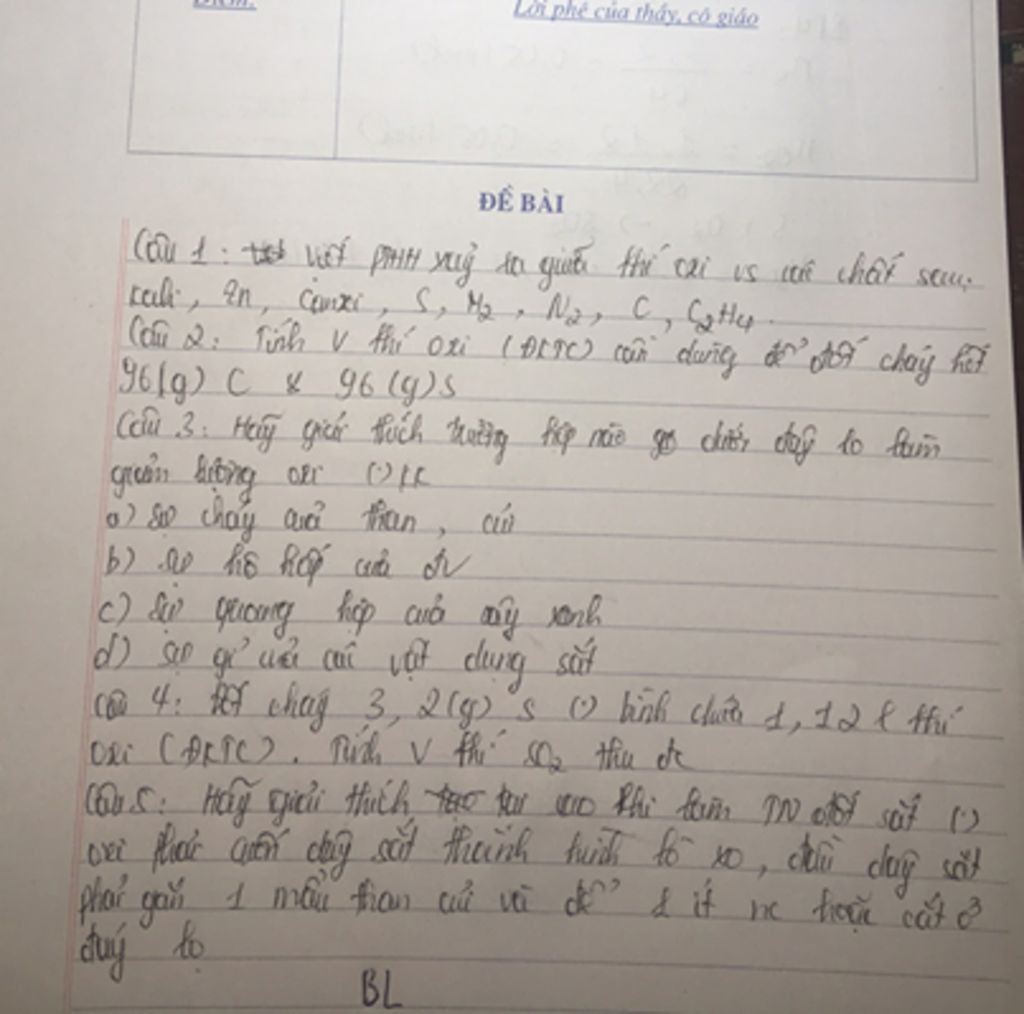 Điểm:
Lời phê của thầy, cô giáo
ĐỀ BÀI
Câu 1: Viết PTHH xảy ra giữa khí oxi vs các chất sau:
kali, Zn, Canxi, S, H2, N2, C, C2H4.
Câu 2: Tính V khí oxi (ĐKTC) cần dùng để đốt cháy hết
96(g) C & 96(g) S
Câu 3: Hãy giải thích trường hợp nào dưới đây làm
giảm lượng oxi (.) KK
a) sự cháy của than, củi
b) sự hô hấp của đv
c) sự quang hợp của cây xanh
d) sự gỉ của các vật dụng sắt
Câu 4: Đốt cháy 3,2(g) S (.) bình chứa 1,12 l khí
oxi (ĐKTC). Tính V khí SO2 thu đc
Câu 5: Hãy giải thích tại sao khi làm TN đốt sắt (.)
oxi phải quấn dây sắt thành hình lò xo, đầu dây sắt
phải gắn 1 mẩu than củi và để 1 ít nc hoặc cát ở
đáy lọ
BL